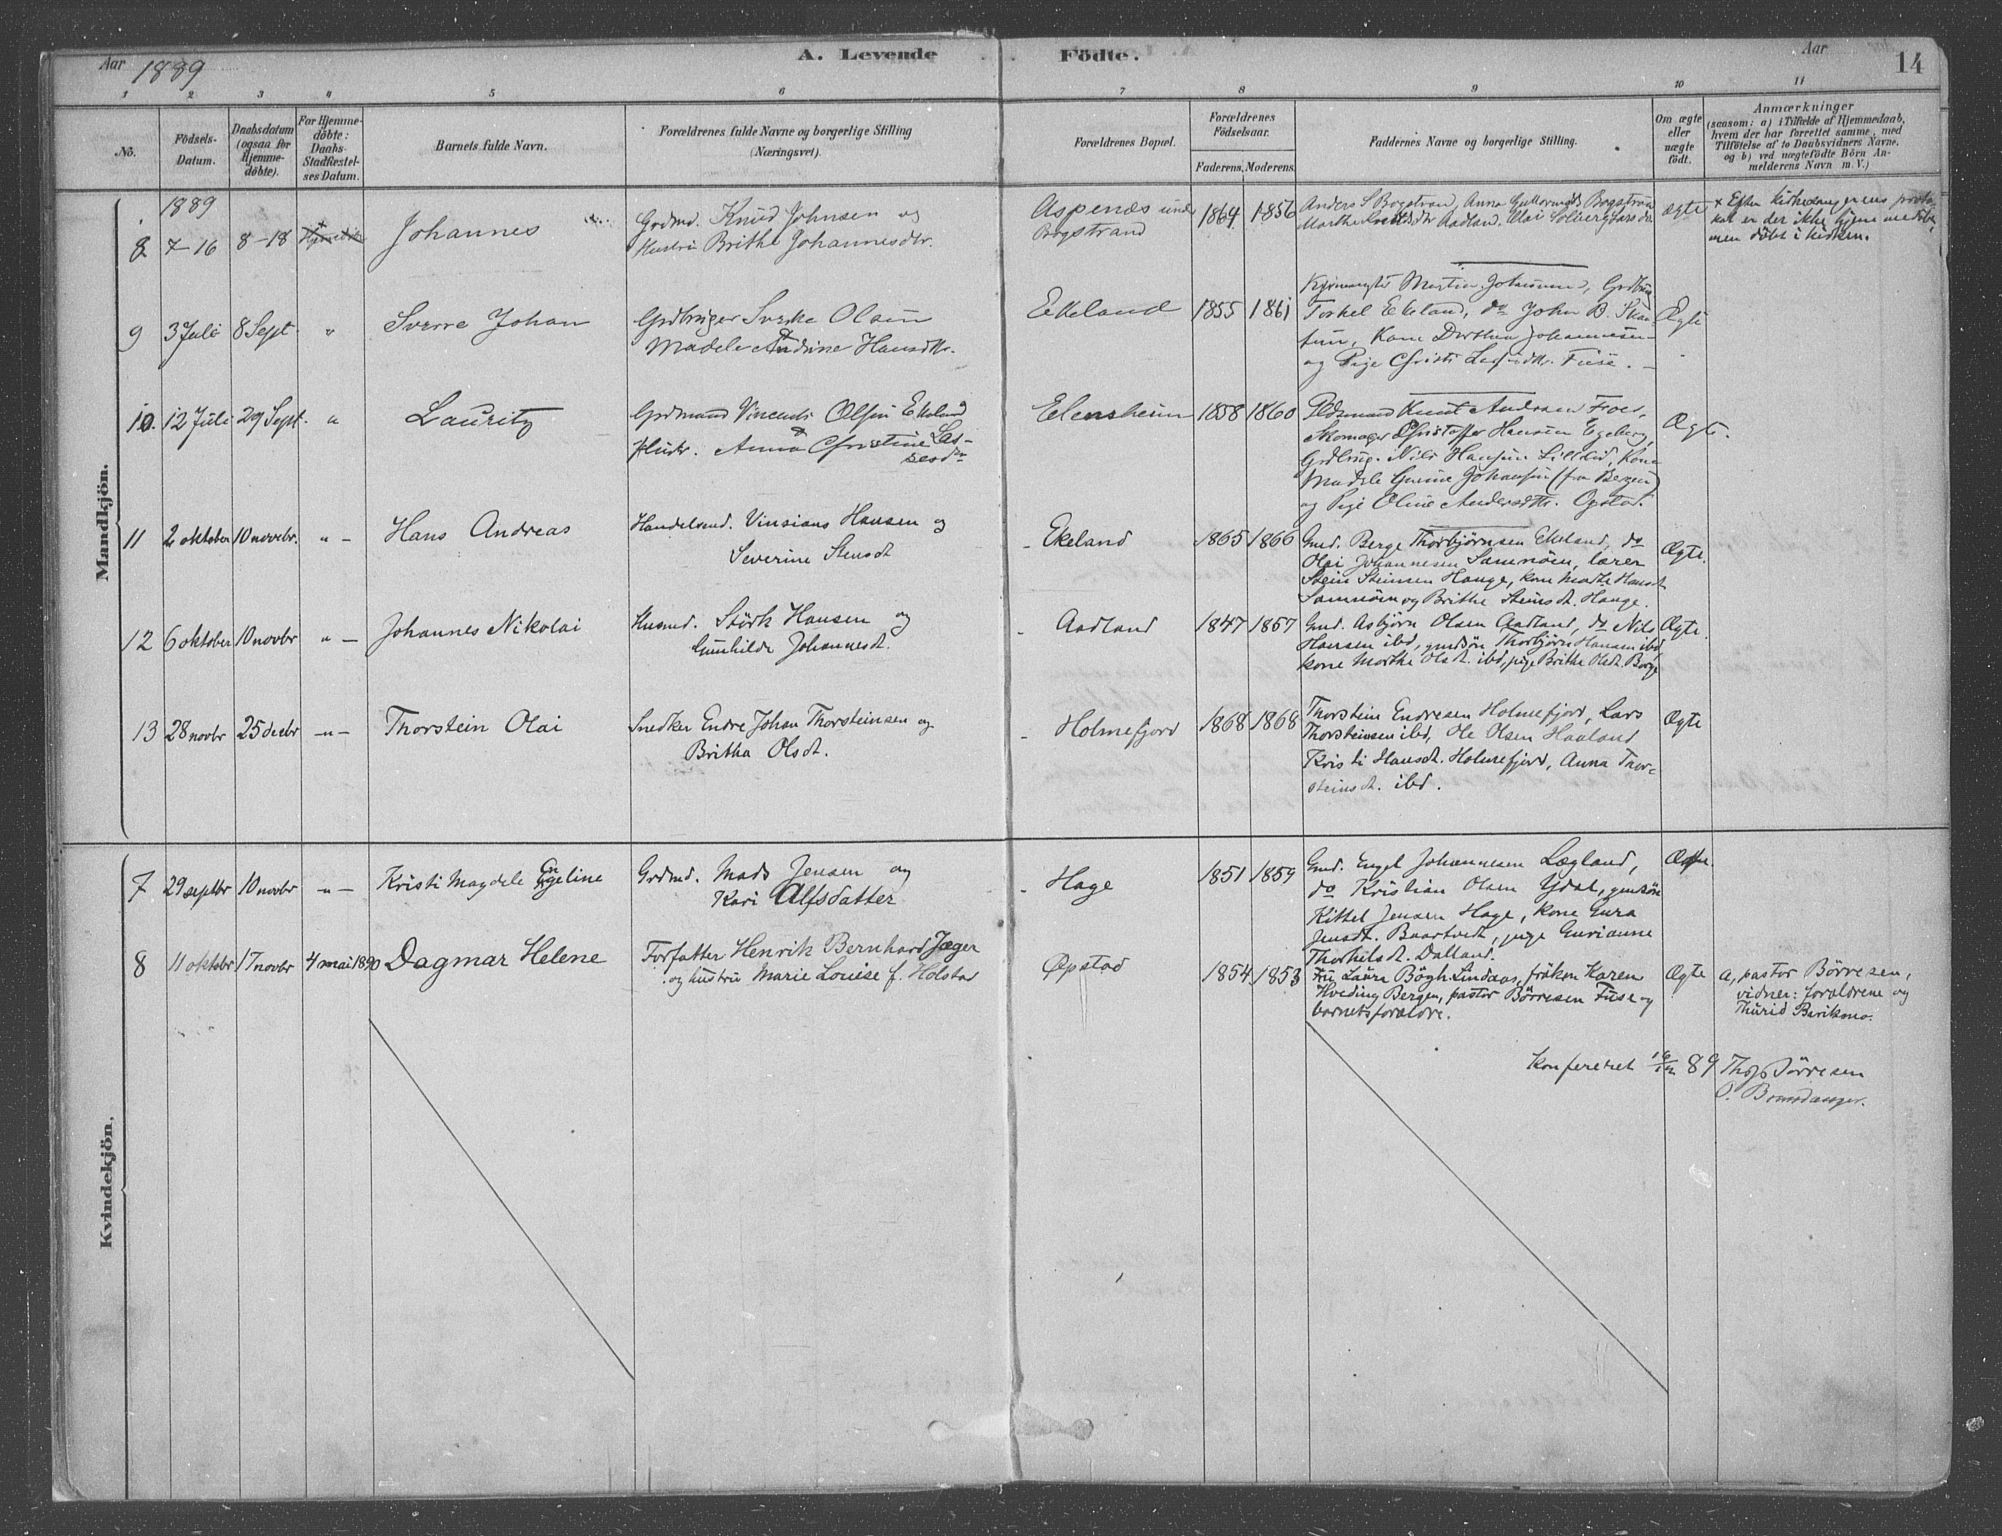 Aar 1889
A. Levende Födte.
Aar
14
1 2 3 4 5 6 7 8 9 10 11
No.
Födsels-Datum.
Daabsdatum (ogsaa for Hjemmedöbte).
For Hjemmedöbte: Daabs Stadfæstelses Datum.
Barnets fulde Navn.
Forældrenes fulde Navne og borgerlige Stilling (Næringsvei).
Forældrenes Bopæl.
Forældrenes Födselsaar.
Faderens. Moderens.
Faddernes Navne og borgerlige Stilling.
Om ægte eller uægte födt.
Anmærkninger
(saasom: a) i Tilfælde af Hjemmedaab,
hvem der har forrettet samme, med
Tilföielse af to Daabsvidners Navne,
og b) ved uægtefödte Börn An-
melderens Navn m. V.)
Mandkjön.
1889
8 7-16 8-18 Johannes
Grdmd. Knud Johnsen og
Hustru Brithe Johannesdtr.
Aspenæs under
Bogstrand
1864 1856
Anders S Bogstrand, Anna Guttormsd Bogstrand
Marthe Aadland, Olai
ægte
+ Efter proto-
kol er der ikke hjem
men döbt i kirken.
9 3 Juli 8 Sept " Sverre Johan
Grdbruger Sverke Olsen
& Madele Andrine Hansdtr.
Ekeland
1855 1861
Martin Johannes, Grdbrug
Torkel Ekeland, do John D. Skaa-
tun, Kone Dorthea Johannesen
og Pige Christi Fuse.
Ægte
10. 12 Juli 29 Sept. " Lauritz
Grdmand Vincents Olsen Ekeland
& Hustr. Anna Christine Las-
sesdtr
Elensheim
1858 1860
Knut Andersen Foes,
Skomager Christoffer Hansen Egeberg,
Grdbrug. Nils Hansen Lillelid, Kone
Madele Johansen (fra Bergen)
og Pige Oline Andersdtr. Opstad.
Ægte.
11 2 oktober 10 novebr. " - Hans Andreas
Handelsmd. Vinsians Hansen og
Severine Stensdt
- Ekeland
1865 1866
Gmd. Berge Thorbjørnsen Ekeland, do
Olai Johannesen Samnøen, lærer
Stein Steinsen Hauge, kone Marthe Hansdt
Samnøen og Brithe Steinsdt. Hauge.
Ægte.
12 6 oktober 10 novbr " - Johannes Nikolai
Husmd. Störk Hansen og
Gunhilde Johannesdt.
- Aadland
1847 1857
Gmd. Asbjørn Olsen Aadland, do Nils
Hansen ibd, gmdsøn Thorbjørn Hansen ibd,
kone Marthe Olsdt. ibd, pige Brithe Olsdt. Borge
Ægte.
13 28 novbr 25 decbr -"- Thorstein Olai
Snedker Endre Johan Thorsteinsen og
Britha Olsdt.
- Holmefjord
1868 1868
Thorstein Endresen Holmefjord, Lars
Thorsteinsen ibd, Ole Olsen Haaland
Kristi Hansdt. Holmefjord, Anna Thor-
steinsdt. ibd.
Ægte
Kvindekjön.
7 29 septbr 10 novbr -"- Kristi Magdele Engeline
Grdmd. Mads Jensen og
Kari Alfsdatter
- Hage
1851 1859
Gmd. Engel Johannesen Lægland,
do Kristian Olsen Ydal, gmdsön
Kittel Jensen Hage, kone Gura
Jensdt. Baartvedt, pige Gurianne
Thorkelsdt. Dalland.
Ægte.
8 11 oktbr 17 novbr 4 mai 1890 Dagmar Helene
Forfatter Henrik Bernhard Jæger
og hustru Marie Louise f. Holstad
Opstad
1854 1853
Fru Laura Bögh Lindaas, fröken Karen
Hveding Bergen, pastor Börresen Fuse og
barnets forældre.
Ægte
a, pastor Börresen,
vidner: forældrene og
Thurid Berikmo.
Konfereret 16/12 89 Ths. Börresen